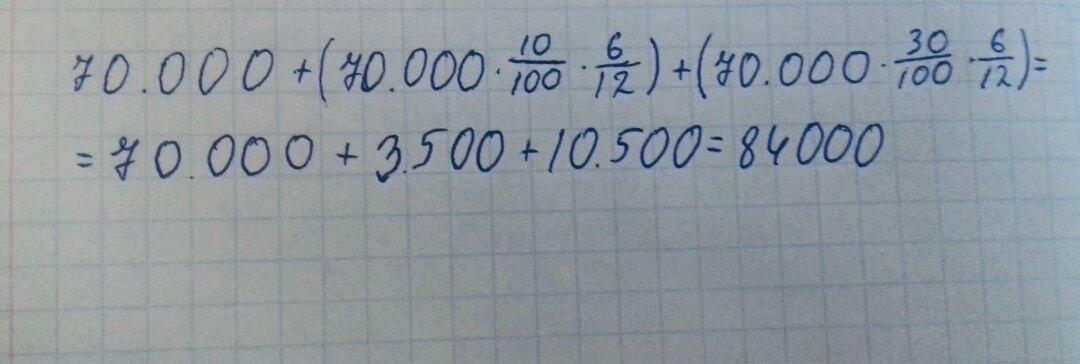 70.000 + (70.000 · 10/100 · 6/12) + (70.000 · 30/100 · 6/12) =
= 70.000 + 3.500 + 10.500 = 84000